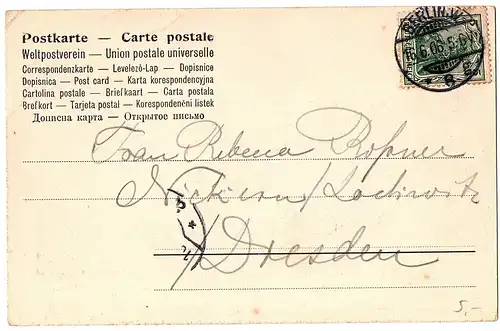 Postkarte — Carte postale
Weltpostverein — Union postale universelle
Correspondenzkarte — Levelező-Lap — Dopisnice
Dopisnica — Post card — Karta korespondencyjna
Cartolina postale — Briefkaart — Carta postala
Brefkort — Tarjeta postal — Korespondenčni listek
Дописна карта — Открытое письмо
BERLIN.W.
6.06
Frau Rebena
/Lockwitz
/Dresden
5,-